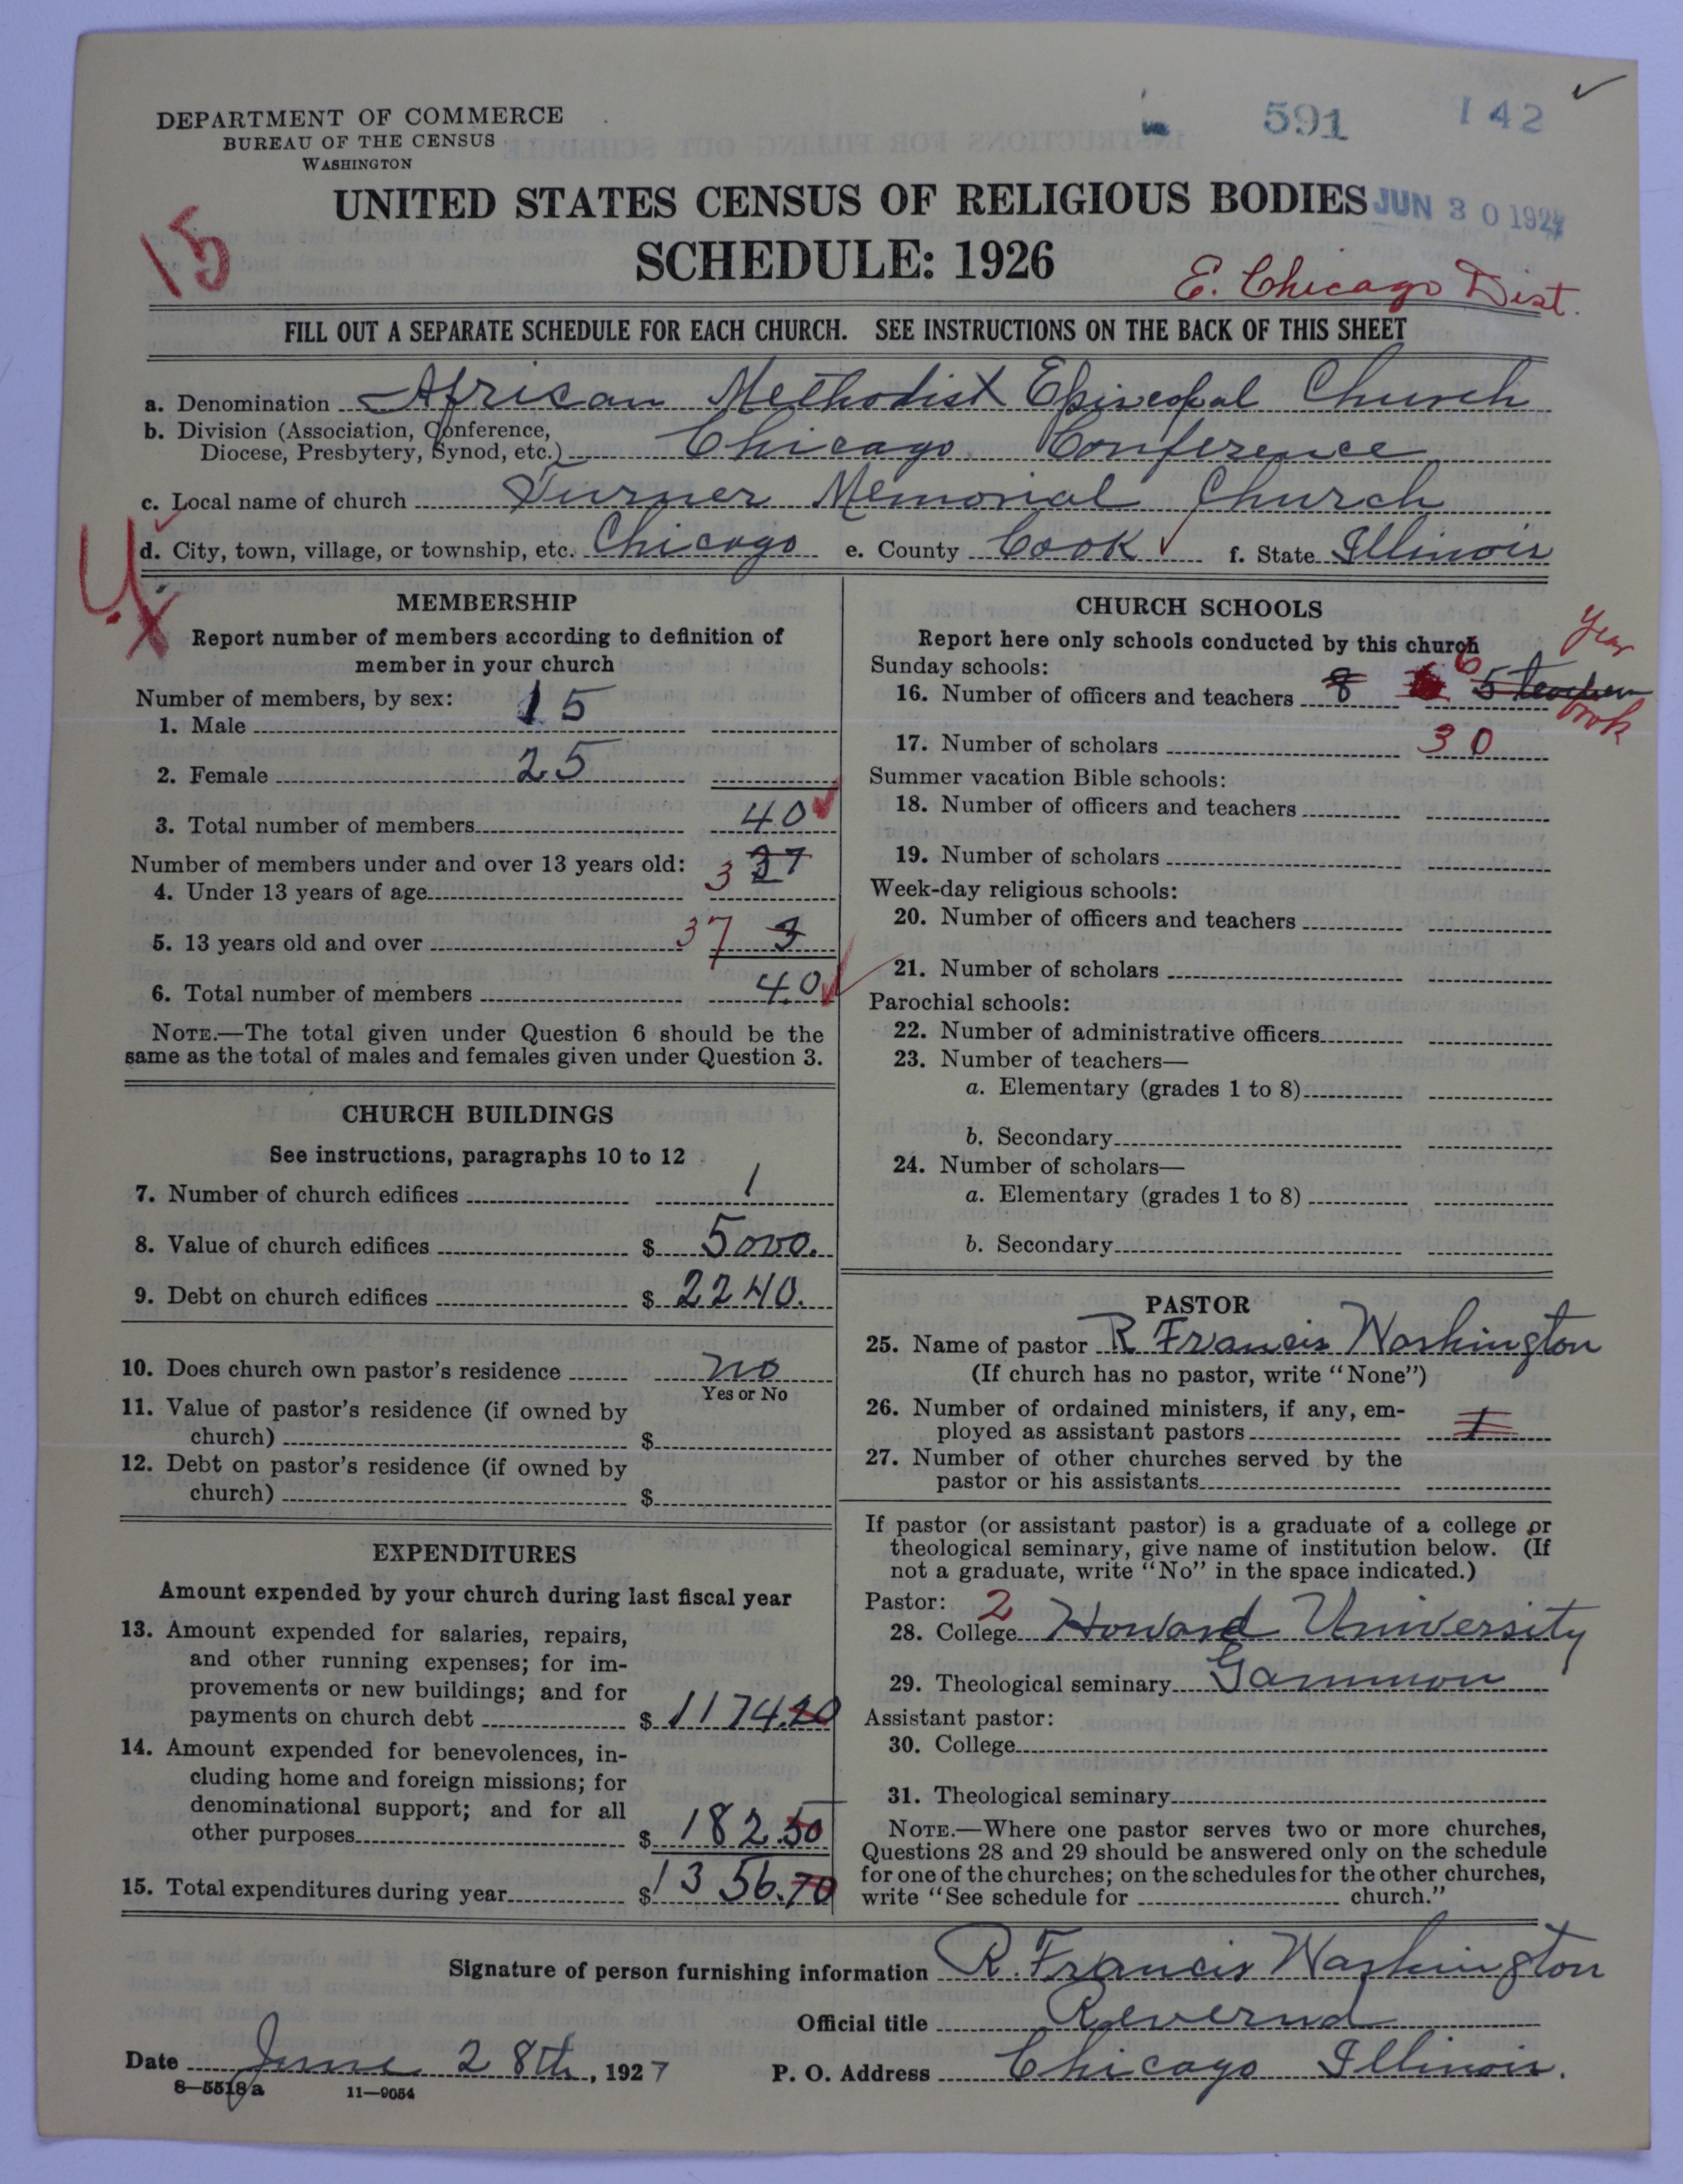 DEPARTMENT OF COMMERCE
BUREAU OF THE CENSUS
WASHINGTON
591 142
UNITED STATES CENSUS OF RELIGIOUS BODIES
JUN 30 1927
15
SCHEDULE: 1926
E. Chicago Dist.
FILL OUT A SEPARATE SCHEDULE FOR EACH CHURCH. SEE INSTRUCTIONS ON THE BACK OF THIS SHEET
a. Denomination African Methodist Episcopal Church
b. Division (Association, Conference,
Diocese, Presbytery, Synod, etc.) Chicago Conference
c. Local name of church Turner Memorial Church
d. City, town, village, or township, etc. Chicago e. County Cook f. State Illinois
MEMBERSHIP
Report number of members according to definition of
member in your church
Number of members, by sex:
1. Male 15
2. Female 25
3. Total number of members 40
Number of members under and over 13 years old:
4. Under 13 years of age 3 37
5. 13 years old and over 37 3
6. Total number of members 40
NOTE.—The total given under Question 6 should be the
same as the total of males and females given under Question 3.
CHURCH BUILDINGS
See instructions, paragraphs 10 to 12
7. Number of church edifices 1
8. Value of church edifices $ 5000.
9. Debt on church edifices $ 2240.
10. Does church own pastor's residence no
Yes or No
11. Value of pastor's residence (if owned by
church) $
12. Debt on pastor's residence (if owned by
church) $
EXPENDITURES
Amount expended by your church during last fiscal year
13. Amount expended for salaries, repairs,
and other running expenses; for im-
provements or new buildings; and for
payments on church debt $ 1174.20
14. Amount expended for benevolences, in-
cluding home and foreign missions; for
denominational support; and for all
other purposes $ 182.50
15. Total expenditures during year $ 1356.70
CHURCH SCHOOLS
Report here only schools conducted by this church
Year
book
Sunday schools:
16. Number of officers and teachers 8 6 5 teachers
17. Number of scholars 30
Summer vacation Bible schools:
18. Number of officers and teachers
19. Number of scholars
Week-day religious schools:
20. Number of officers and teachers
21. Number of scholars
Parochial schools:
22. Number of administrative officers
23. Number of teachers—
a. Elementary (grades 1 to 8)
b. Secondary
24. Number of scholars—
a. Elementary (grades 1 to 8)
b. Secondary
PASTOR
25. Name of pastor R Francis Washington
(If church has no pastor, write "None")
26. Number of ordained ministers, if any, em-
ployed as assistant pastors 1
27. Number of other churches served by the
pastor or his assistants
If pastor (or assistant pastor) is a graduate of a college or
theological seminary, give name of institution below. (If
not a graduate, write "No" in the space indicated.)
Pastor: 2
28. College Howard University
29. Theological seminary Gammon
Assistant pastor:
30. College
31. Theological seminary
NOTE.—Where one pastor serves two or more churches,
Questions 28 and 29 should be answered only on the schedule
for one of the churches; on the schedules for the other churches,
write "See schedule for church."
Signature of person furnishing information R. Francis Washington
Official title Reverend
Date June 28th, 1927 P. O. Address Chicago Illinois.
8—5518a 11—9054